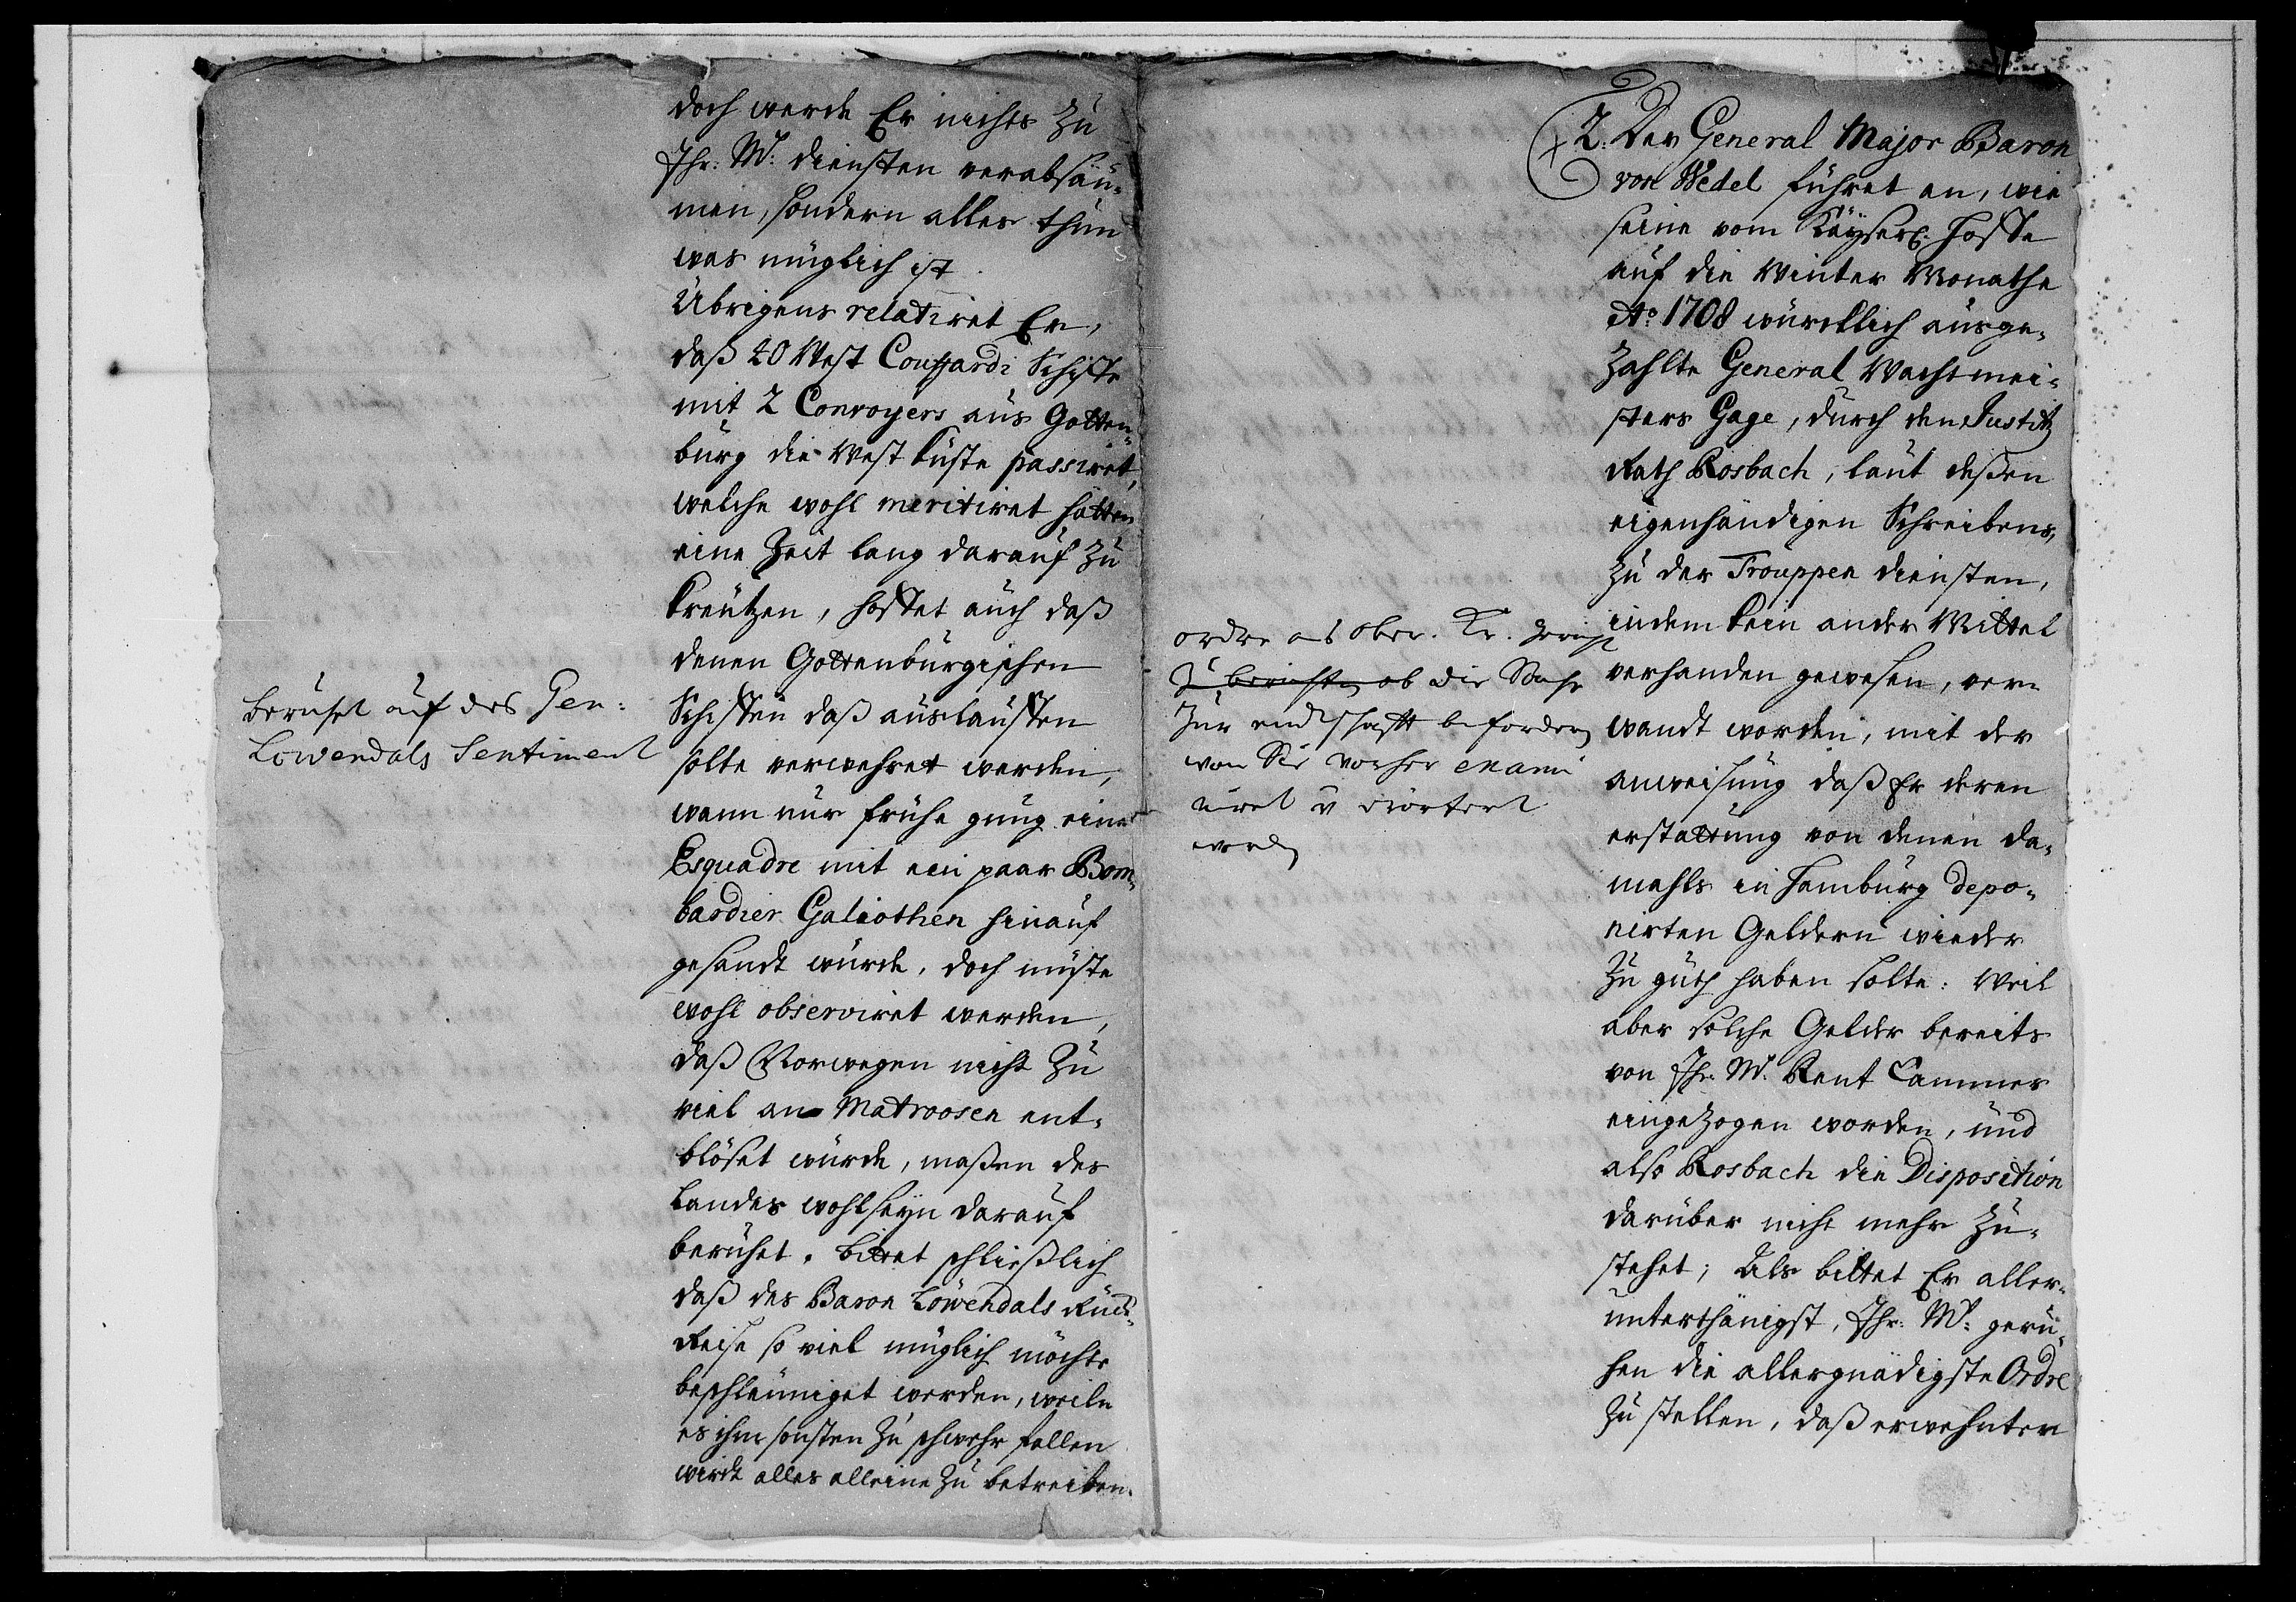 doch werde Er nichts zu
Ihr. M: diensten verabsäu-
men, sondern alles thun
was müglich ist.
Übrigens relatiret Er,
daß 40 West Schiffe
mit 2 Convoyers aus Gotten-
burg die West Küste passiret,
welche wohl meritiret hätten
eine Zeit lang darauf zu
Kreutzen, hoffet auch daß
denen Gottenburgischen
Schiffen daß auslauffen
solte verwehret werden,
wann nur frühe gnug eine
Esquadre mit ein paar Bom-
bardier Galiothen hinauf
gesandt würde, doch müste
wohl observiret werden,
daß Norwegen nicht zu
viel an Matroosen ent-
blöset würde, maßen des
Landes wohlseyn darauf
beruhet. Bittet schließlich
daß des Baron Löwendals Rück-
Reise so viel müglich möchte
beschleuniget werden, weiln
es ihm sonsten zu schwehr fallen
wirdt alles alleine zu betreiben.
beruhet auf des Gen:
Lowendals Sentiment
2. Der General Major Baron
von Wedel führet an, wie
seine vom Käyserl. Hoffe
auf die Winter Monathe
Ao. 1708 würcklich ausge-
zahlte General Wachtmei-
sters Gage, durch den Justitz
Rath Rosbach, laut deßen
eigenhändigen Schreibens,
zu der Trouppen diensten,
indem kein ander Mittel
verhanden gewesen, ver-
wandt worden, mit der
anweisung daß Er deren
erstattung von denen da-
mahls in Hamburg depo-
nirten Geldern wieder
zu guth haben solte: Weil
aber solche Gelder bereits
von Ihr. M. Rent Cammer
eingezogen worden, und
also Rosbach die Disposition
darüber nicht mehr zu-
stehet; Als bittet Er aller-
unterthänigst, Ihr. M: geru-
hen die allergnädigste Ordre
zu stellen, daß erwehnter
ordre an Ober. Kr.
zu berichten ob die Sache
zur endtschafft befordern
wan Sie vorher exami
niret u erörtert